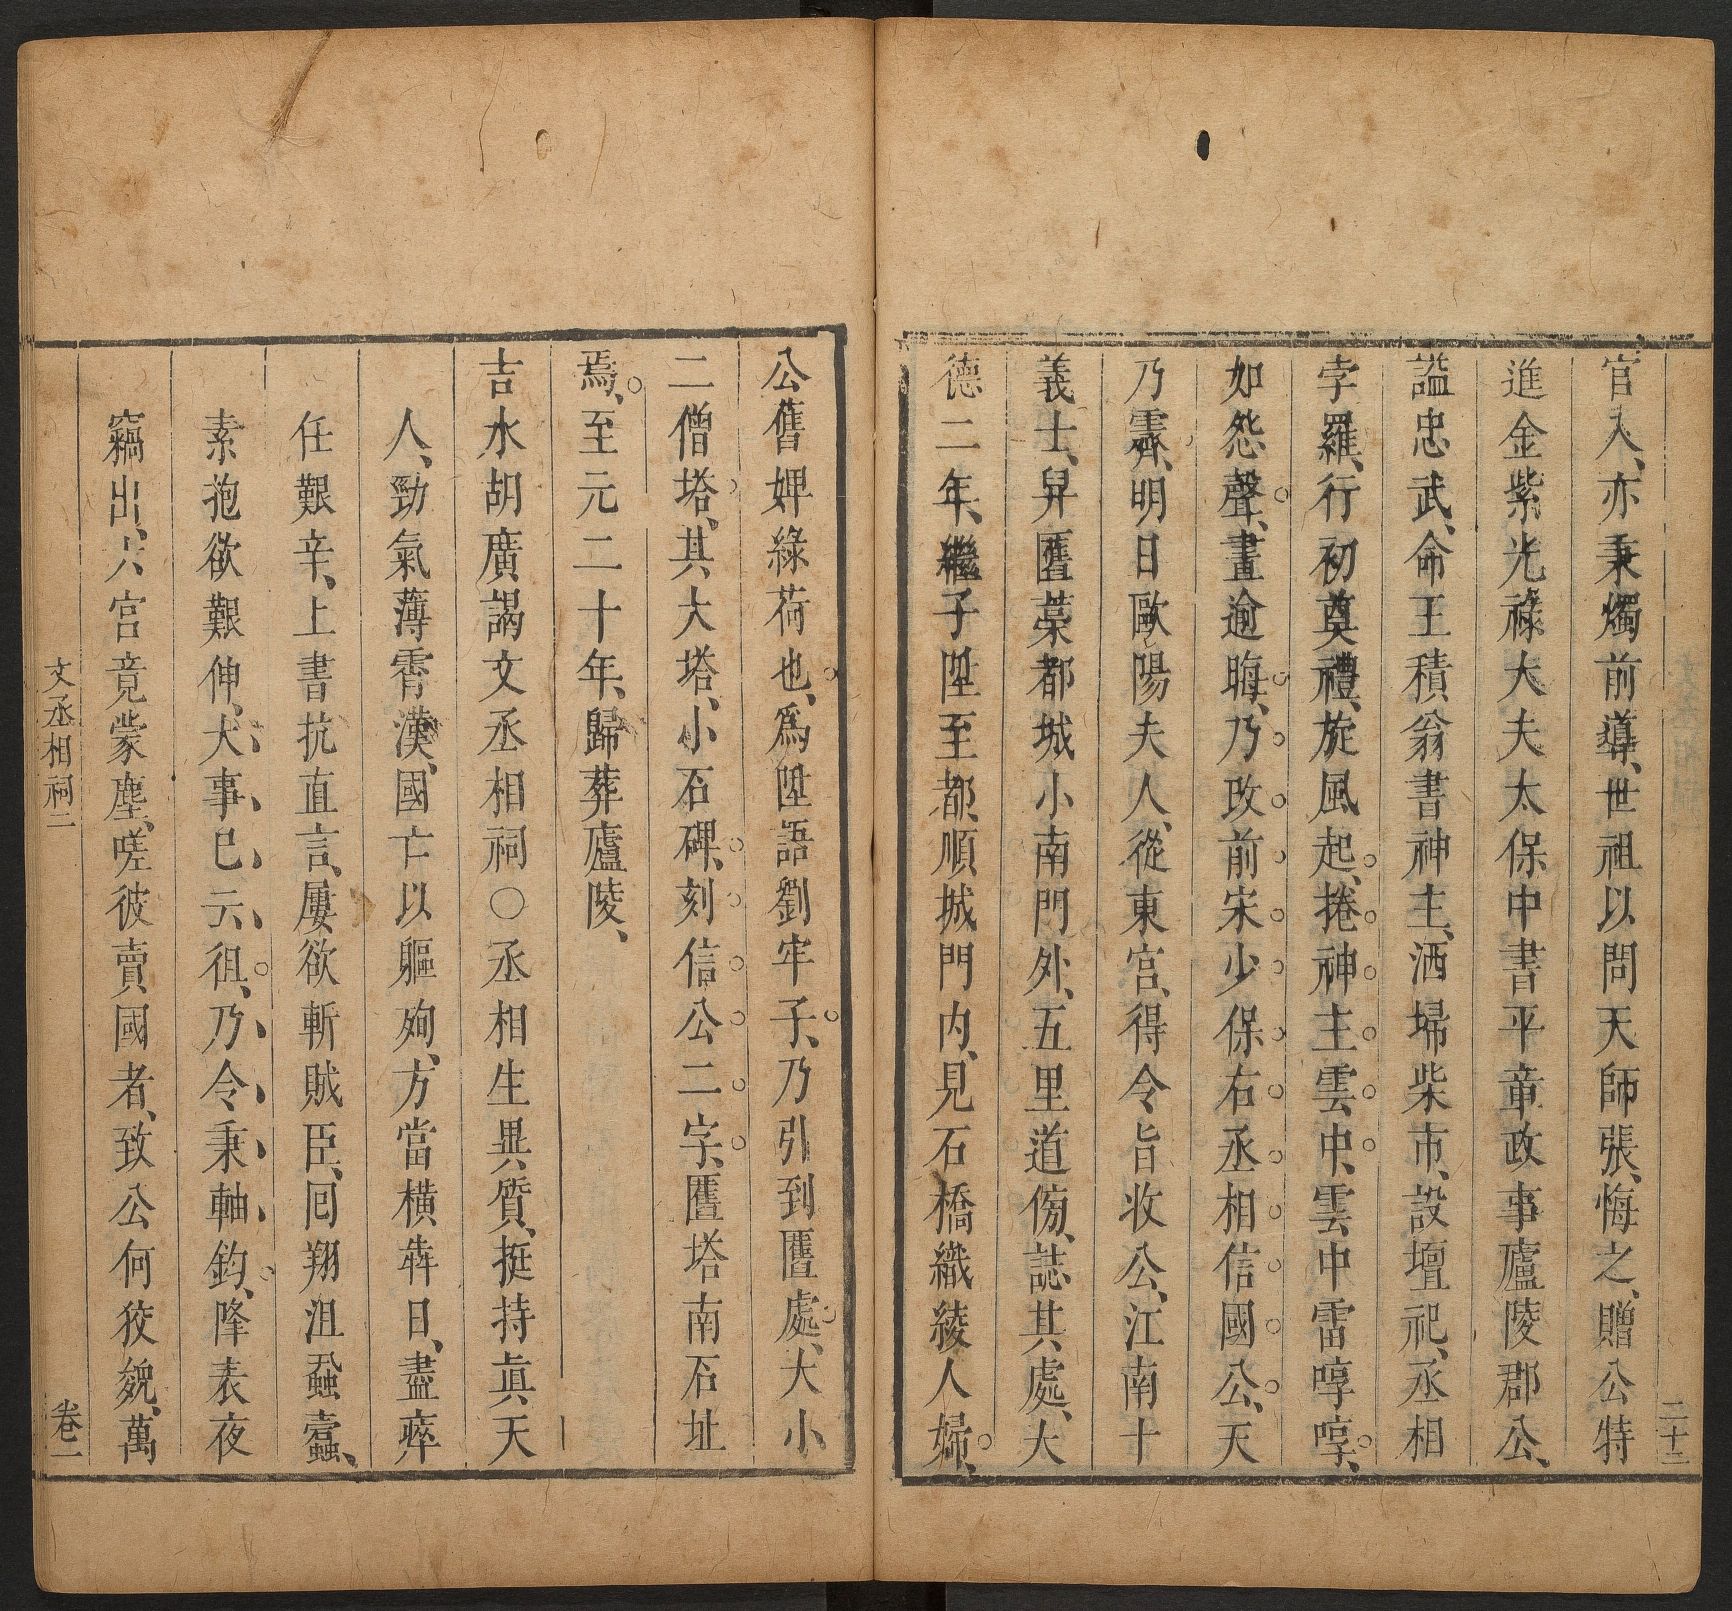 官入、亦秉燭前導、世祖以問天師張、悔之、贈公特
進金紫光祿大夫太保中書平章政事廬陵郡公、
謚忠武、命王積翁書神主、洒埽柴市、設壇祀、丞相
孛羅、行初奠禮、旋風起、捲神主雲中、雲中雷哼哼、
如怨聲、晝逾晦、乃改前宋少保右丞相信國公、天
乃霽、明日歐陽夫人、從東宮、得令旨收公、江南十
義士、舁匶藁都城小南門外、五里道傍、誌其處、大
德二年、繼子陞至都、順城門內、見石橋織綾人婦、
二十三
公舊婢綠荷也、爲陞語劉牢子、乃引到匶處、大小
二僧塔、其大塔、小石碑、刻信公二字、匶塔南石址
焉、至元二十年、歸葬廬陵、
吉水胡廣謁文丞相祠○丞相生異質、挺持眞天
人、勁氣薄霄漢、國亡以軀殉、方當橫犇日、盡瘁
任艱辛、上書抗直言、屢欲斬賊臣、囘翔沮蝨蠹、
素抱欲艱伸、大事已云徂、乃令秉軸鈞、降表夜
竊出、六宮竟蒙塵、嗟彼賣國者、致公何狡貌、萬
文丞相祠二
卷二